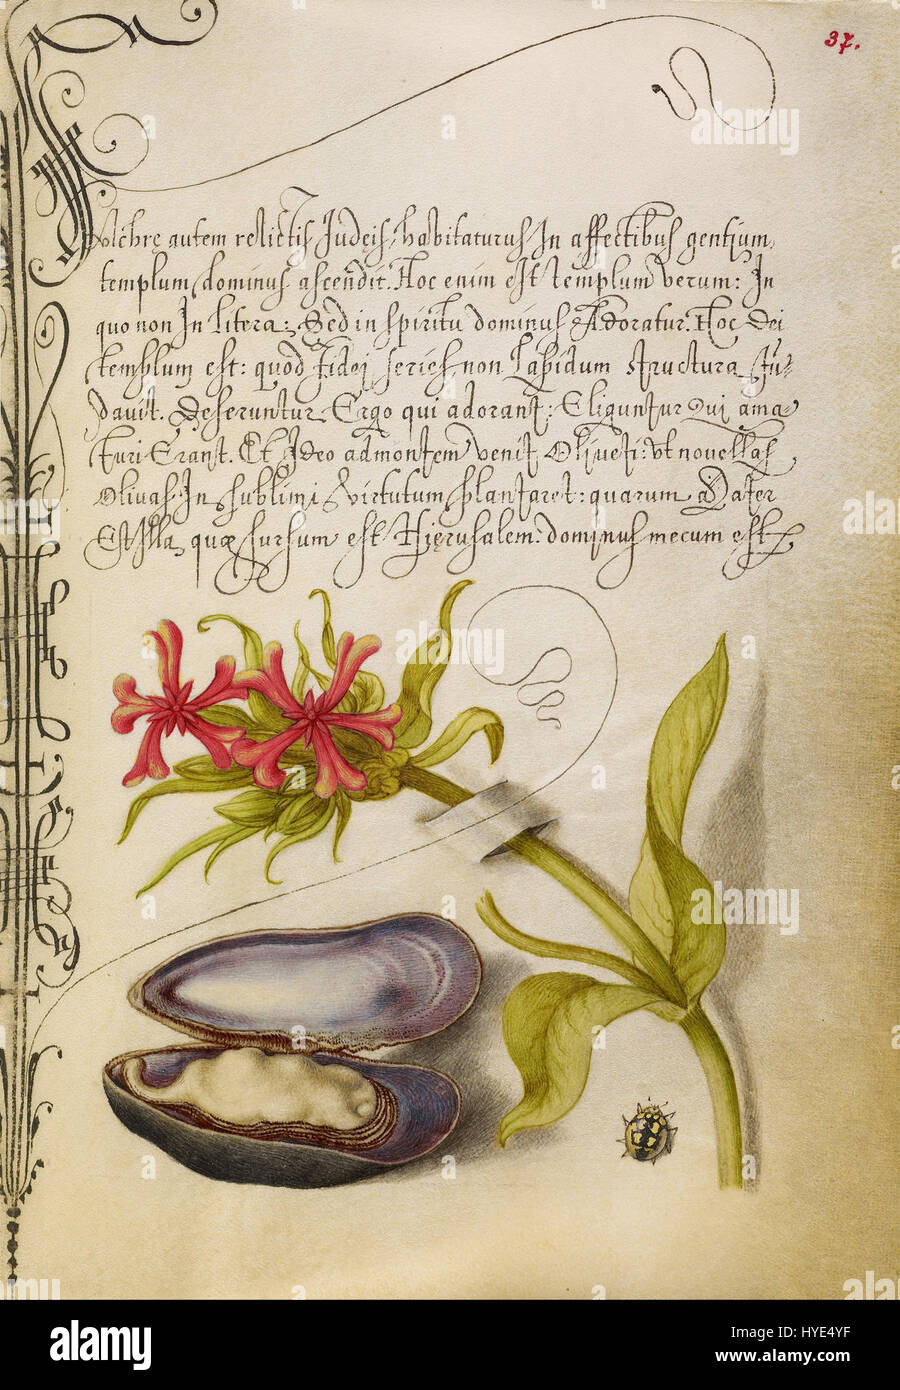 37.
Vebre autem relictis Judeis, habitaturus In affectibus gentium,
templum dominus ascendit. Hoc enim est templum verum: In
quo non In litera: Sed in spiritu dominus Adoratur. Hoc Dei
templum est: quod Fidej series non Lapidum structura fu-
davit. Deseruntur Ergo qui adorant: Eliguntur Qui ama-
turi Erant. Et Ideo ad montem venit Oliveti: vt novellas
Olivas In sublimi virtutum plantaret: quarum Mater
Est Illa, quæ sursum est Hierusalem: dominus mecum est
alamy
Image ID: HYE4YF
www.alamy.com